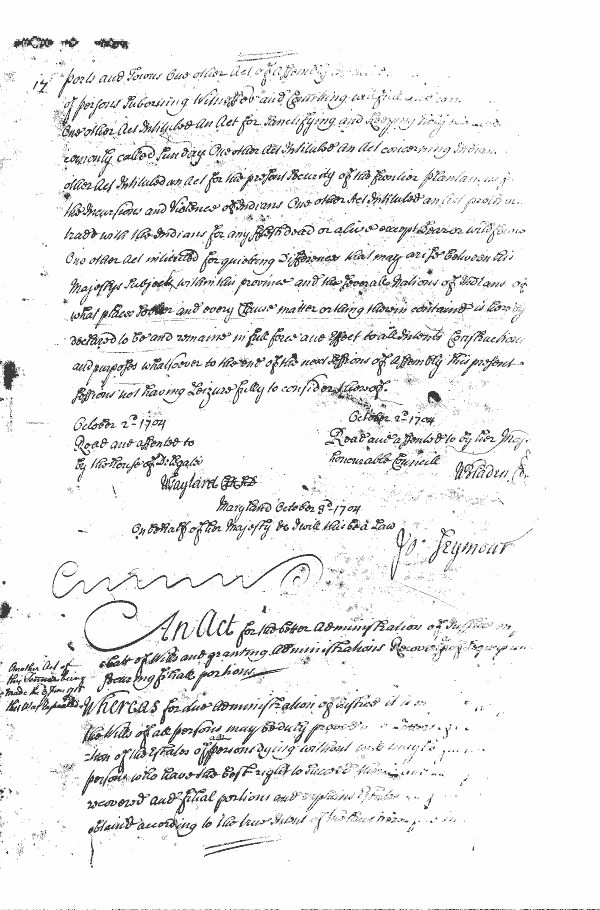 17
ports and Towns One other Act of Assembly
of persons Suborning Witnesses and Comitting wilfull and
One other Act Intituled An Act for Sanctifying and keeping holy
comonly called Sunday One other Act Intituled an Act concerning Indians
other Act Intituled an Act for the present Security of the frontier plantations
the Incursions and Violence of Indians One other Act Intituled an Act
trade with the Indians for any fflesh dead or alive except Deare or wild fowle
One other Act intituled for quieting Differences that may arise between his
Majestys Subjects within this province and the severall Nations of Indians of
what place soever and every Clause matter or thing therein contained is hereby
declared to be and remaine in full force and effect to all Intents Construction
and purposes whatsoever to the end of the next Sessions of Assembly this present
Sessions not having Leizure fully to consider thereof.
October 2d. 1704
Read and assented to
by the house of Delegate
Wayland
October 2d. 1704
Read and assented to by her Maj
honourable Councill
WBladen
Maryland October 3d. 1704
On behalf of her Majesty &c I will this be a Law
Jo: Seymour
An Act for the better Administration of Justice in
-bate of Wills and granting Administrations Recovery of
securing filiall portions
Another Act of
this being
made
this was repealed
Whereas for due Administration of Justice it is
the Wills of all persons may be duly proved
-tion of the Estates of all persons dying without
persons who have the best right to succeed
recovered and filial portions and orphans Estates
obtained according to the true Intent of